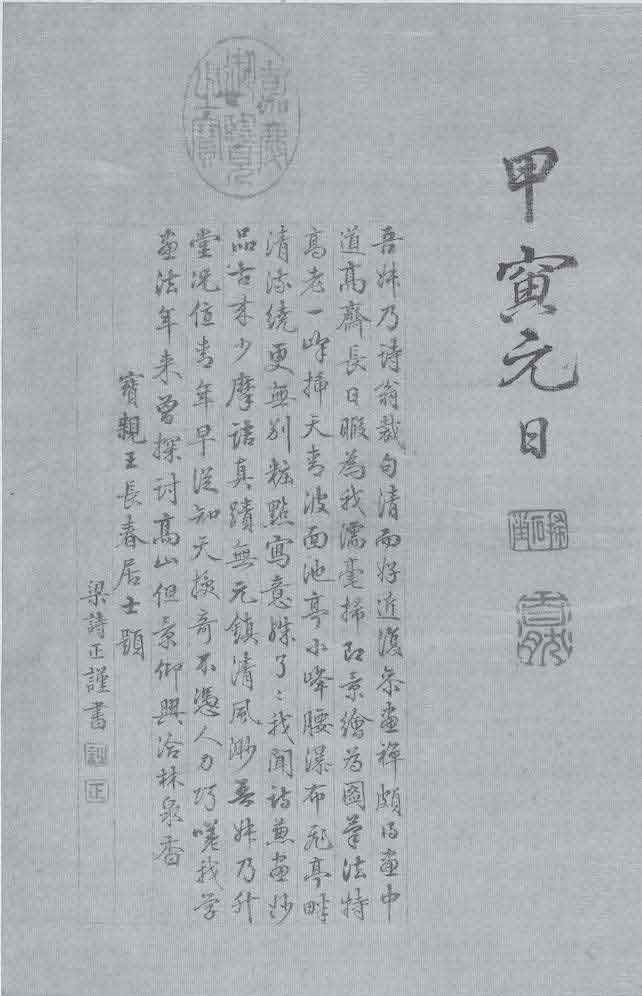 甲寅元日
嘉慶御覽之寶
吾叔乃詩翁裁句清而好近復參畫禪頗得畫中
道高齋長日暇為我濡毫掃即景繪為圖筆法特
高老一峰插天青波面池亭小峰腰瀑布飛亭畔
清流繞更無別粧點寫意殊了〻我聞詩兼畫妙
品古來少摩詰真蹟無元鎮清風渺吾叔乃升
堂況值青年早從知天機奇不憑人力巧嗟我學
畫法年來曾探討高山但景仰興洽林泉杳
寶親王長春居士題
梁詩正謹書
詩
正